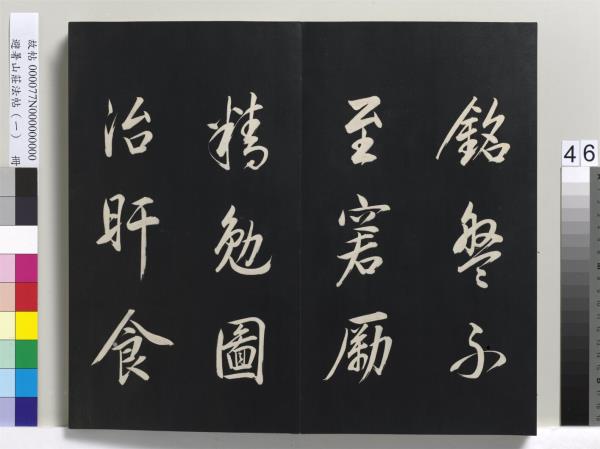 銘盤不
至窘勵
精勉圖
治旰食
故帖 000077N000000000
避暑山莊法帖（一） 冊
46